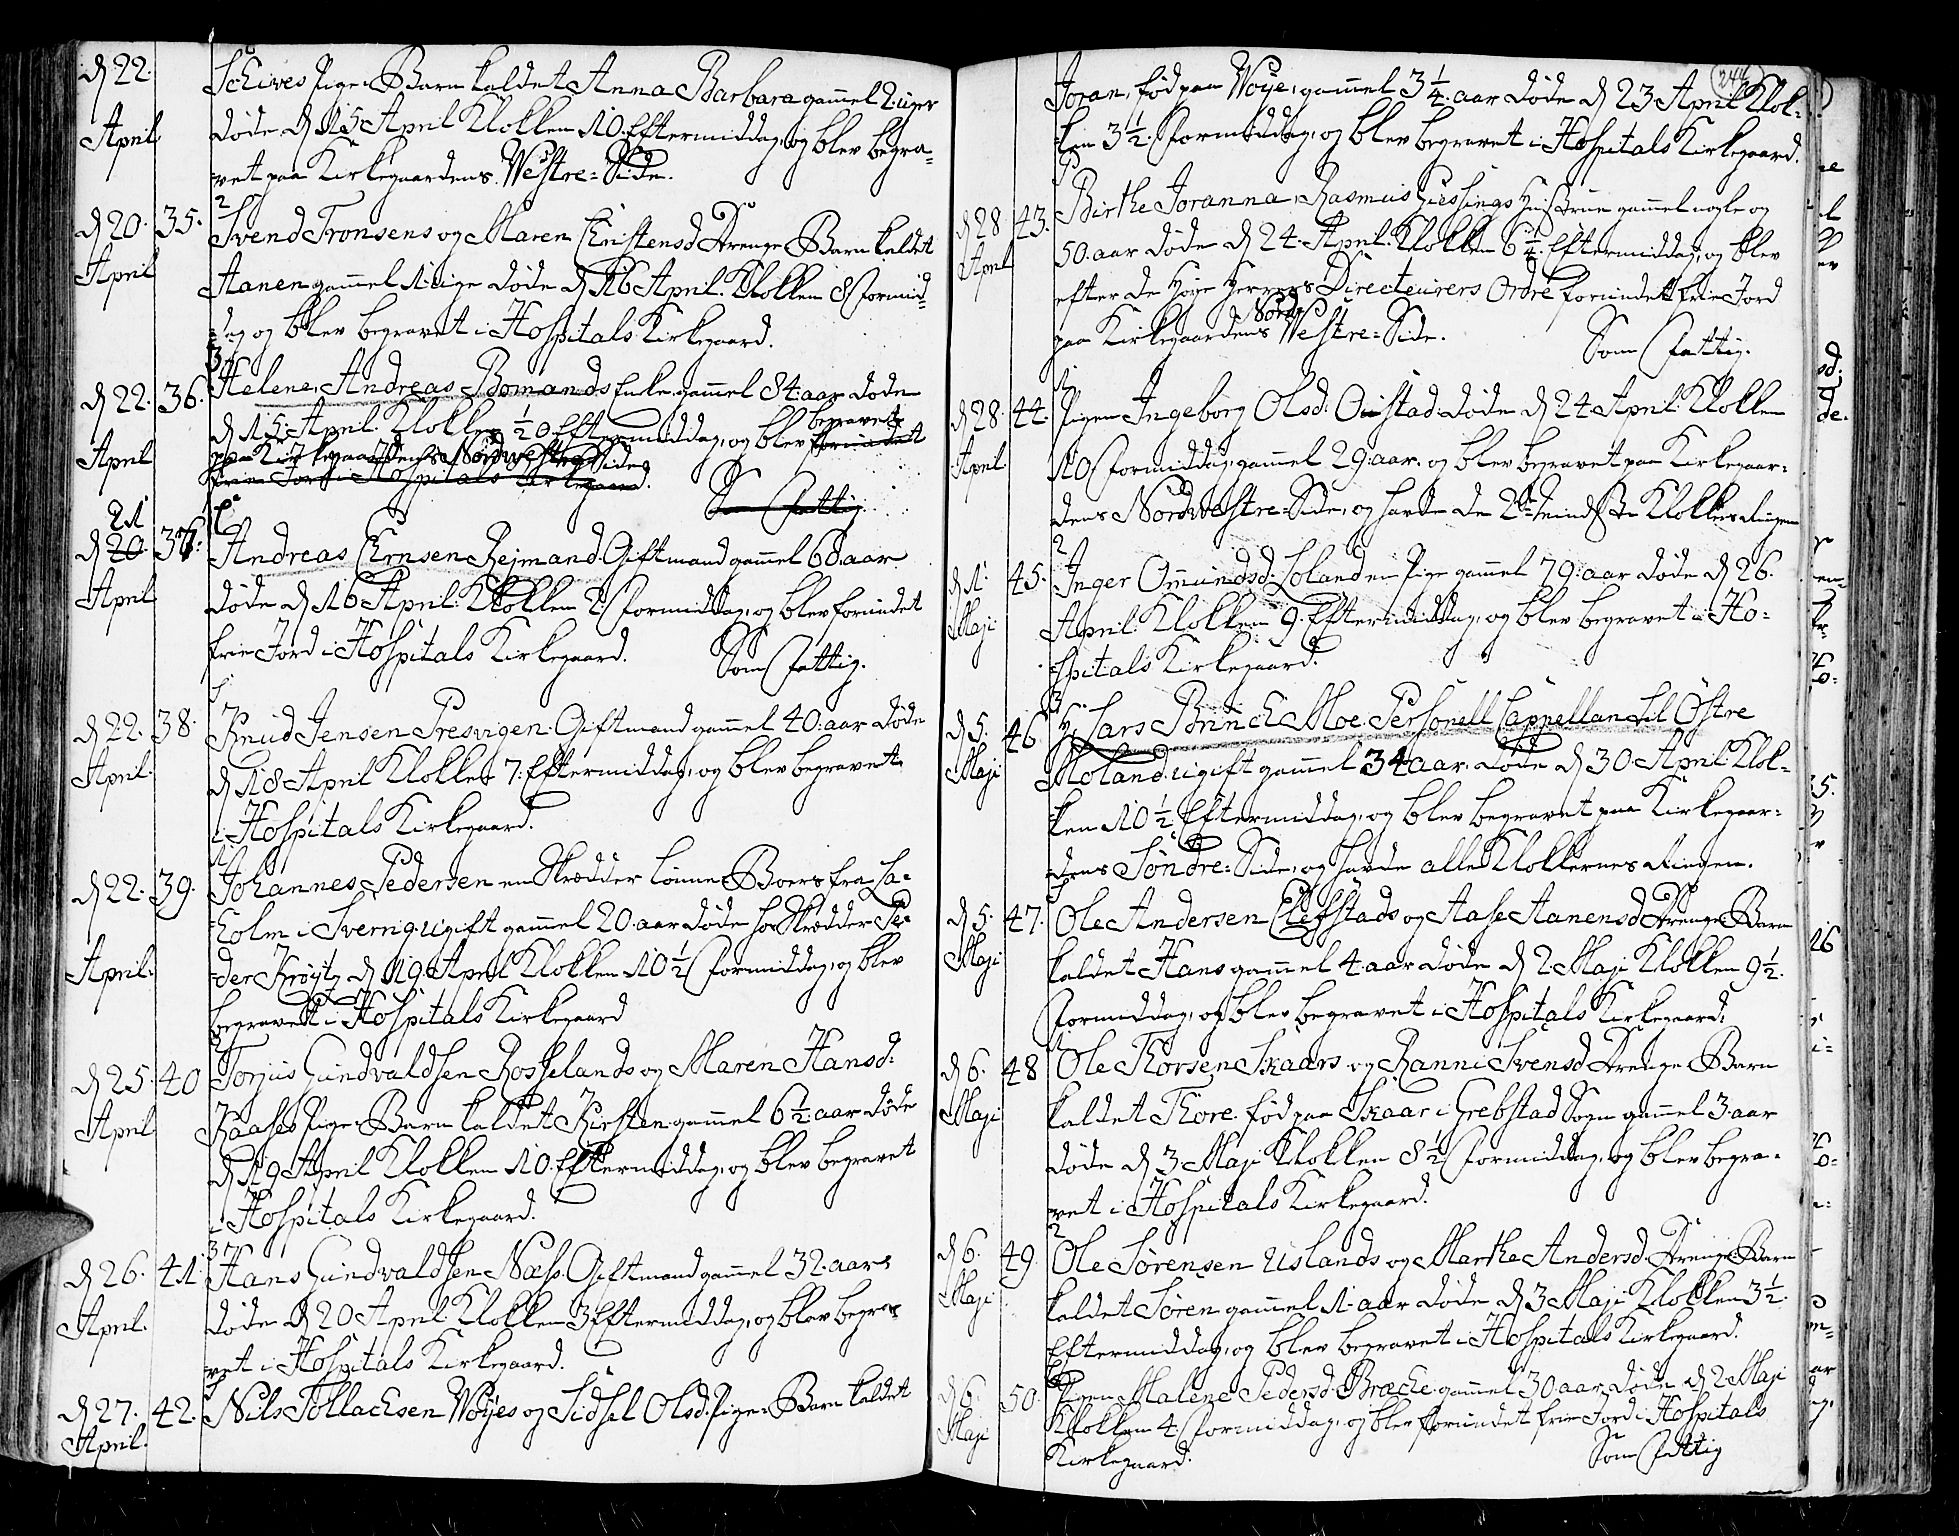 d 22. April
Schives Pige-Barn kaldet Anna Barbara gammel 2. uger
døde d 15 April Klokken 10. Eftermiddag, og blev begra-
vet paa Kirkegaardens Vestre-Side.
2
d 20. April 35. Svend Tronsens og Maren Christensd Drenge-Barn kaldet
Aanen gammel 1. uge døde d 16 April. Klokken 8 Formid-
dag og blev begravet i Hospitals Kirkegaard.
3
d 22. April 36. Helene, Andreas Bomands Enke, gammel 84. aar døde
d 15 April. Klokken ½0. Eftermiddag, og blev begravet forundet
paa Kirkegaardens Nordvestre Side
frie Jord i Hospitals Kirkegaard. Som Fattig.
21
d 20. April 37. Andreas Ernsen Rejmand. Giftmand gammel 60. aar
døde d 16 April. Klokken 2. Formiddag, og blev forundet
frie Jord i Hospitals Kirkegaard. Som Fattig.
d 22. April. 38. Knud Jensen Presvigen. Giftmand gammel 40. aar døde
d 18 April Klokken 7. Eftermiddag, og blev begravet
i Hospitals Kirkegaard.
d 22. April. 39. Johannes Pedersen en Skrædder Svend Boers fra La-
holm i Sverrig ugift gammel 20. aar døde hos Skrædder Pe-
der Krøytz d 19. April Klokken 10½ Formiddag, og blev
begravet i Hospitals Kirkegaard
d 25. April 40 Torjus Gundvaldsen Rosselands og Maren Hansd:
Raases Pige-Barn kaldet Kirsten gammel 6½. aar døde
d 19 April Klokken 10. Eftermiddag, og blev begravet
i Hospitals Kirkegaard.
3
d 26. April. 41. Hans Gundvaldsen Næss. Giftmand gammel 32. aar
døde d 20 April Klokken 3 Eftermiddag, og blev begra-
vet i Hospitals Kirkegaard.
d 27. April. 42. Nils Tollachsen Vøyes og Sidsel Olsd. Pige-Barn kaldet
244
Joran, fød paa Vøye, gammel 3¼. aar døde d 23 April Klok-
ken 3½. Formiddag, og blev begravet i Hospitals Kirkegaard.
d 28 April 43. Birthe Joranna, Rasmus Giessings Hustrue gammel nogle og
50. aar døde d 24. April. Klokken 6½. Eftermiddag, og blev
efter de Høye Herrers Directeurers Ordre forundet frie Jord
Nord
paa Kirkegaardens Vestre-Side. Som Fattig.
d 28 April. 44. Pigen Ingeborg Olsd: Omstad. døde d 24 April. Klokken
10 Formiddag, gammel 29. aar. og blev begravet paa Kirkegaar-
dens Nordvestre-Side, og havde de 2de mindste Klokkers Ringen
2
d 1. Maji 45. Inger Ommundsd: Loland en Pige gammel 79. aar døde d 26.
April. Klokken 9. Eftermiddag, og blev begravet i Ho-
spitals Kirkegaard.
3
d 5. Maji 46 Hr. Lars Brinch Moe. Personell Cappellan til Østre
Moland. ugift gammel 34 aar. døde d 30 April. Klok-
ken 10½ Eftermiddag, og blev begravet paa Kirkegaar-
dens Søndre-Side, og havde alle Klokkernes Ringen.
d 5. Maji 47. Ole Andersen Elefstads og Aase Aanensd Drenge-Barn
kaldet Hans gammel 4. aar døde d 2. Maji Klokken 9½.
Formiddag, og blev begravet i Hospitals Kirkegaard.
d 6. Maji 48 Ole Thorsen Skaars og Ranni Svensd Drenge-Barn
kaldet Thore. fød paa Skaar i Grebstad Sogn gammel 3. aar
døde d 3 Maji Klokken 8½ Formiddag, og blev begra-
vet i Hospitals Kirkegaard.
2
d 6. Maji 49. Ole Sørensen Uslands og Marthe Andersd. Drenge-Barn
kaldet Søren gammel 1. aar døde d 3 Maji Klokken 3½.
Eftermiddag, og blev begravet i Hospitals Kirkegaard.
d 6. Maji 50. Pigen Malene Pedersd. Bræche gammel 30 aar døde d 2 Maji
Klokken 4. Formiddag, og blev forundet frie Jord i Hospitals
Kirkegaard. Som Fattig